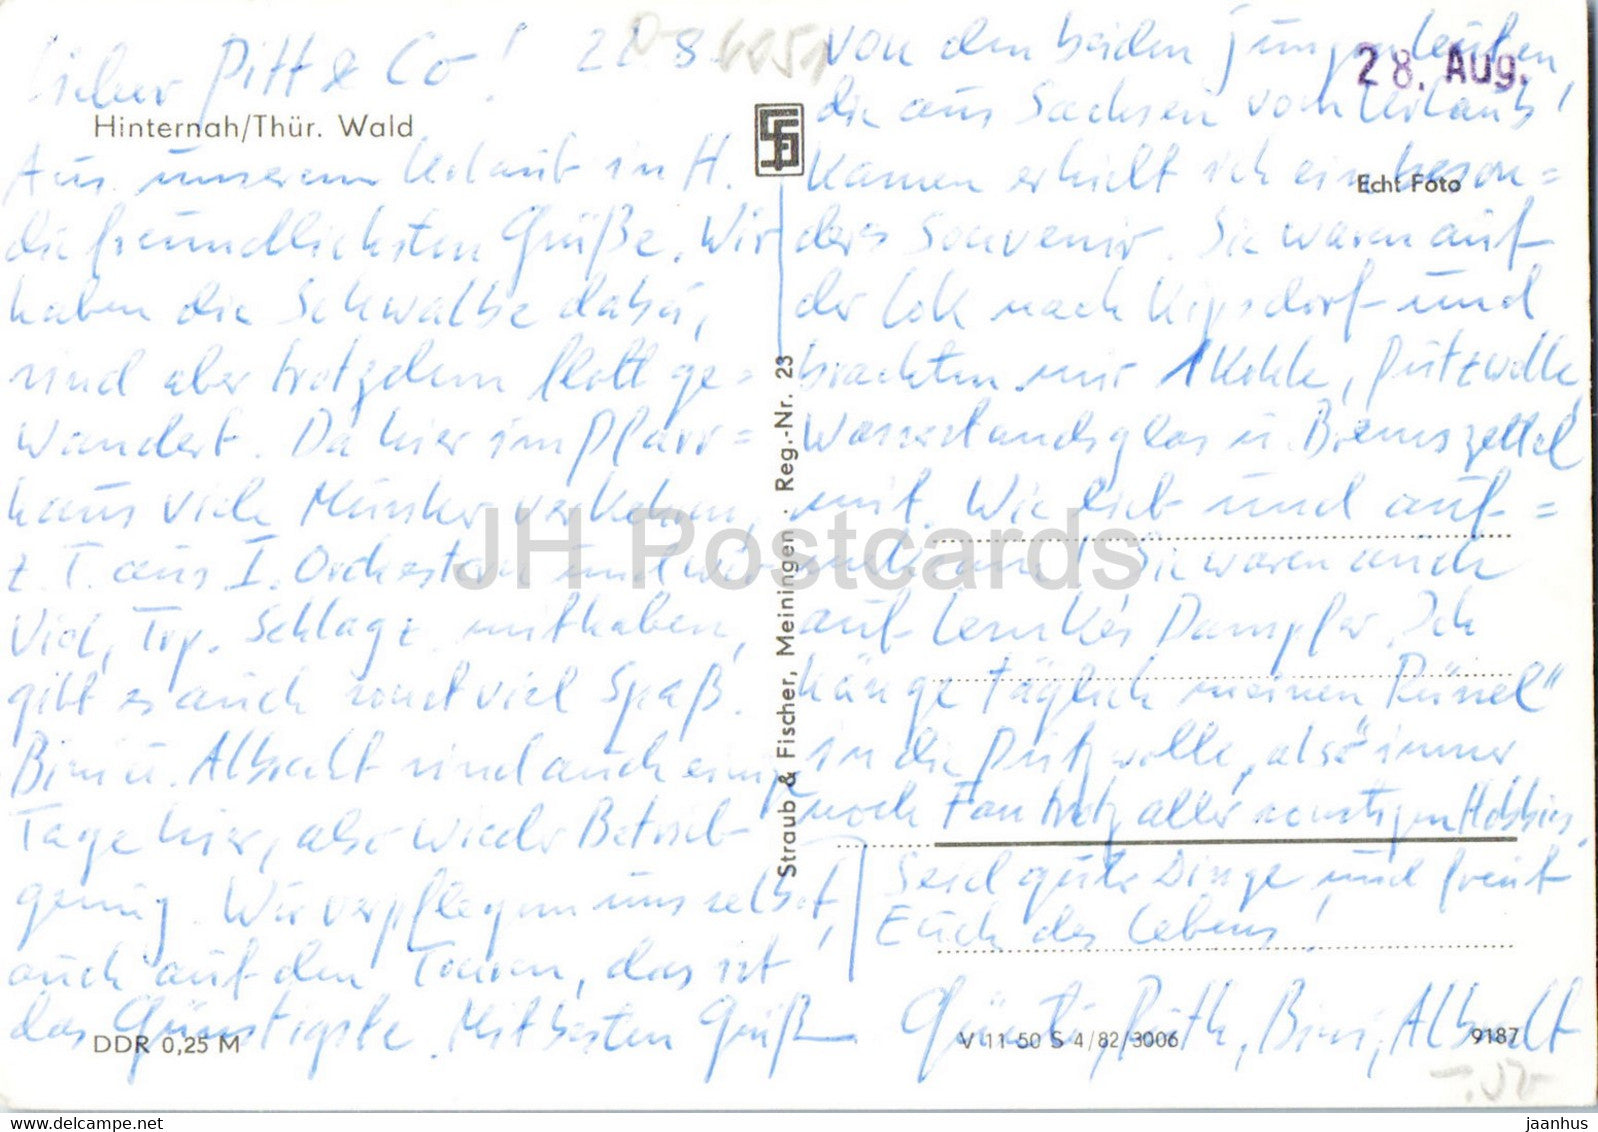 Lieber Pitt & Co! 28.8.
Hinternah/Thür. Wald
Aus unserem Urlaub in H.
die freundlichsten Grüße. Wir
haben die Schwalbe dabei,
sind aber trotzdem flott ge=
wandert. Da hier im Pfarr=
haus viele Musiker verkehren,
z. T. aus I. Orchestern und wir
Viol, Trp. Schlagz mithaben,
gibt es auch sonst viel Spaß.
Bini u. Albrecht sind auch einige
Tage hier, also wieder Betrieb
genug. Wir verpflegen uns selbst,
auch auf den Touren, das ist
das Günstigste. Mit besten Grüßen
DDR 0,25 M
Straub & Fischer, Meiningen . Reg.-Nr. 23
28. Aug.
Echt Foto
von den beiden jungen Leuten,
die aus Sachsen vom Urlaub
kamen erhielt ich ein beson=
deres Souvenir. Sie waren auf
der Lok nach Kipsdorf und
brachten mir 1 Kohle, Putzwolle,
Wasserstandsglas u. Bremszettel
mit. Wie lieb und auf=
merksam! Sie waren auch
auf Lemke's Dampfer. Ich
hänge täglich meinen "Rüssel"
in die Putzwolle, also immer
noch Fan trotz aller sonstigen Hobbies.
Seid guter Dinge und freut
Euch des Lebens!
Günter, Ruth, Bini, Albrecht
V 11 50 S 4/82/3006
9187
JH Postcards
hipstamp.com
jaanhus